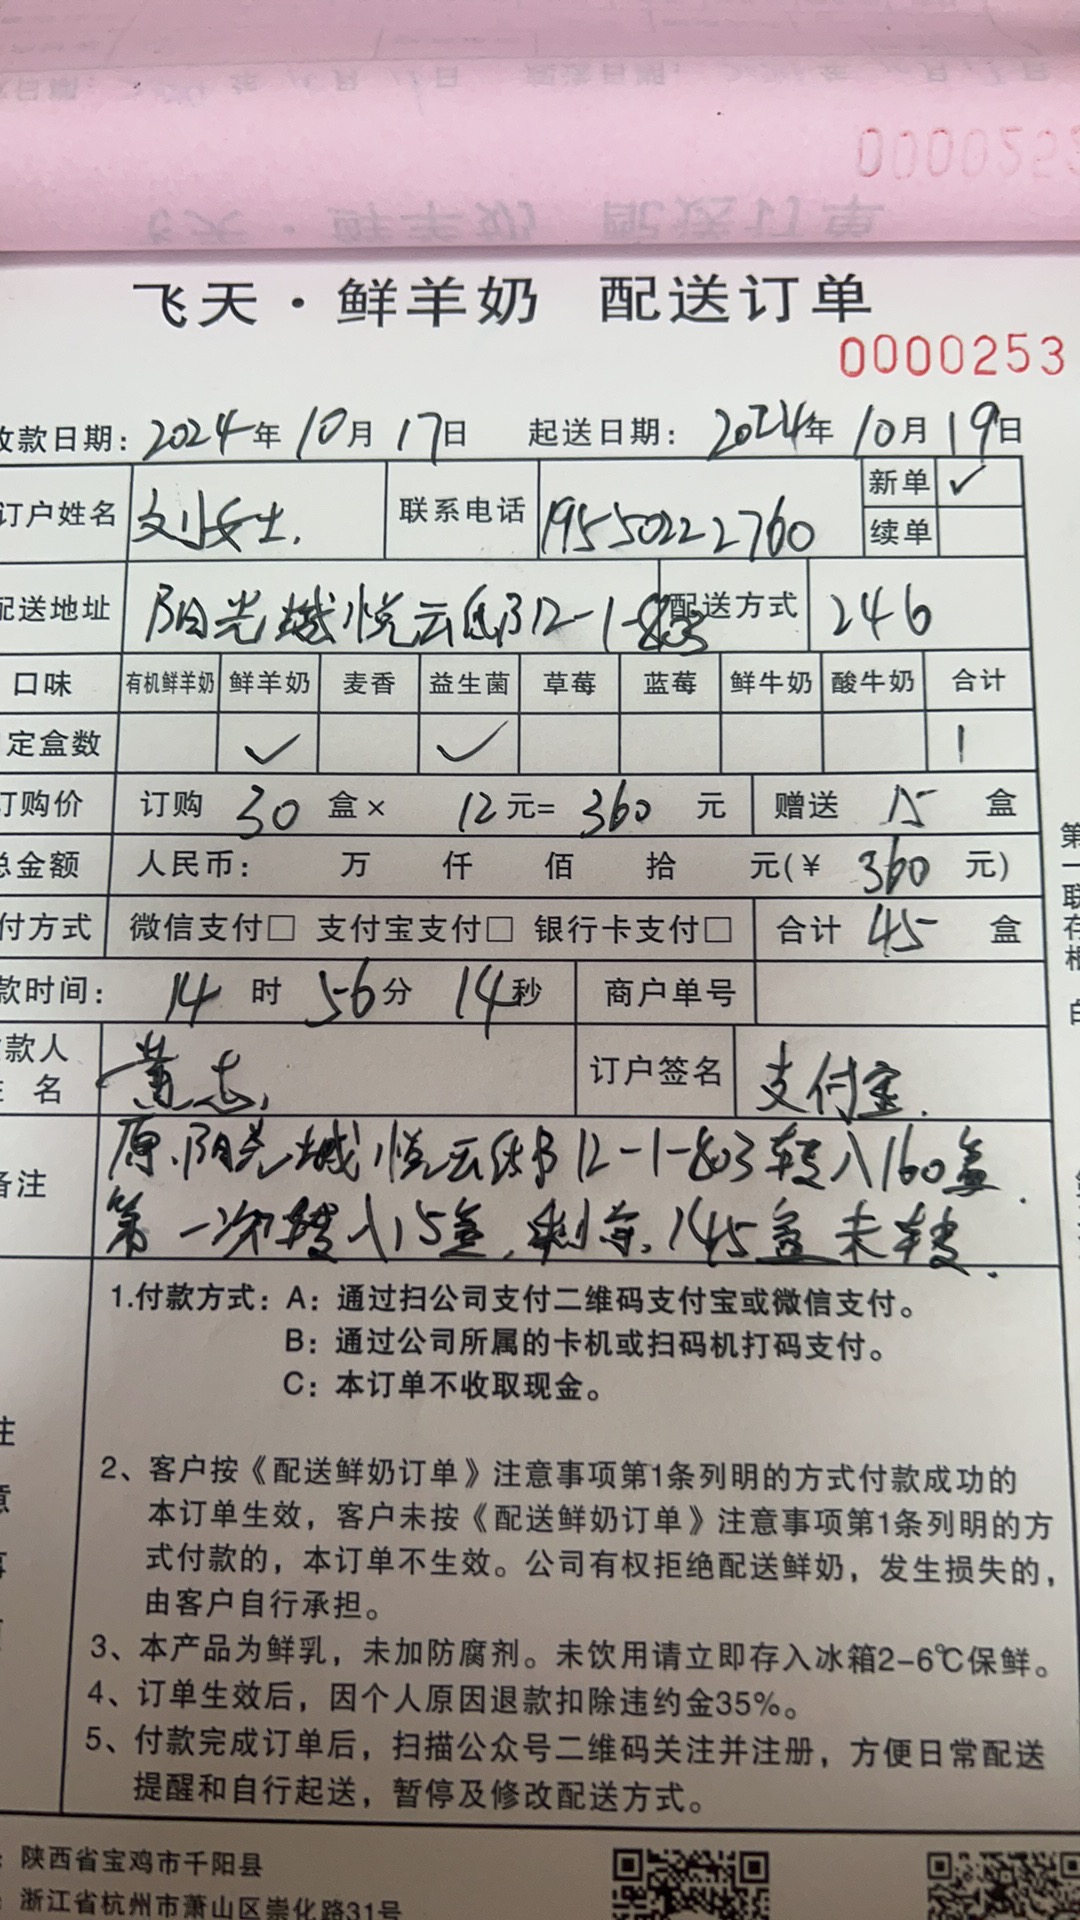 飞天·鲜羊奶 配送订单
0000253
收款日期: 2024年 10月 17日 起送日期: 2024年 10月 19日
订户姓名 刘女士. 联系电话 19550222760 新单 ✓
续单
配送地址 阳光城悦云邸B12-1-803 配送方式 246
口味 有机鲜羊奶 鲜羊奶 麦香 益生菌 草莓 蓝莓 鲜牛奶 酸牛奶 合计
定盒数 ✓ ✓ 1
订购价 订购 30 盒× 12元= 360 元 赠送 15 盒
总金额 人民币: 万 仟 佰 拾 元(¥ 360 元)
付方式 微信支付□ 支付宝支付□ 银行卡支付□ 合计 45 盒
款时间: 14 时 56分 14秒 商户单号
款人
名 黄志, 订户签名 支付宝.
备注 原阳光城悦云邸B12-1-803转入160盒.
第一次转入15盒,剩余145盒未转.
1.付款方式: A: 通过扫公司支付二维码支付宝或微信支付。
B: 通过公司所属的卡机或扫码机打码支付。
C: 本订单不收取现金。
注
意
事
项
2、客户按《配送鲜奶订单》注意事项第1条列明的方式付款成功的
本订单生效，客户未按《配送鲜奶订单》注意事项第1条列明的方
式付款的，本订单不生效。公司有权拒绝配送鲜奶，发生损失的，
由客户自行承担。
3、本产品为鲜乳，未加防腐剂。未饮用请立即存入冰箱2-6℃保鲜。
4、订单生效后，因个人原因退款扣除违约金35%。
5、付款完成订单后，扫描公众号二维码关注并注册，方便日常配送
提醒和自行起送，暂停及修改配送方式。
陕西省宝鸡市千阳县
浙江省杭州市萧山区崇化路31号
第一联存根
白